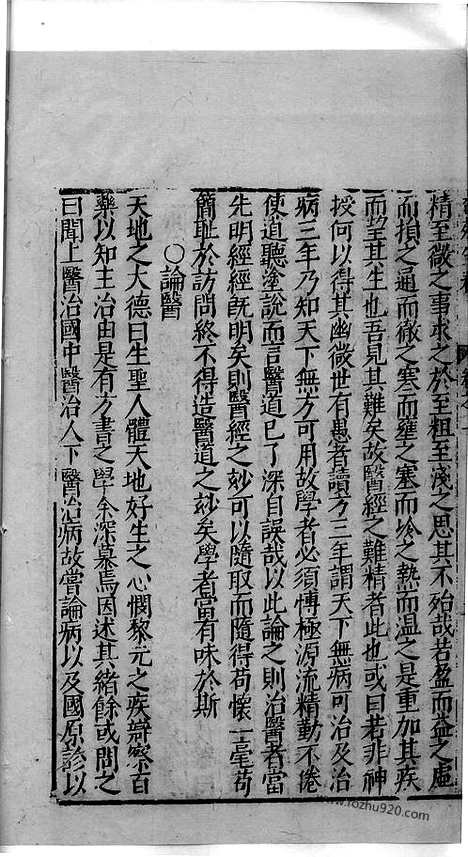 精至微之事求之於至粗至淺之思其不殆哉若盈而益之虛
而損之通而徹之塞而壅之寒而冷之熱而溫之是重加其疾
而望其生也吾見其難矣故醫經之難精者此也或曰若非神
授何以得其幽微世有愚者讀方三年謂天下無病可治及治
病三年乃知天下無方可用故學者必須博極源流精勤不倦
使道聽塗說而言醫道已了深自誤哉以此論之則治醫者當
先明經經旣明矣則醫經之玅可以隨取而隨得苟懷一毫苟
簡耻於訪問終不得造醫道之玅矣學者當有味於斯
○論醫
天地之大德曰生聖人體天地好生之心憫黎元之疾辯察百
藥以知主治由是有方書之學余深慕焉因述其緒餘或問之
曰聞上醫治國中醫治人下醫治病故嘗論病以及國原診以
www.rozhu920.com